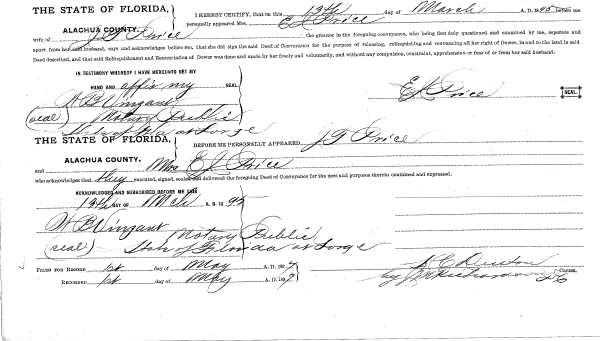 THE STATE OF FLORIDA,
ALACHUA COUNTY.
I HEREBY CERTIFY, that on this 13th day of March A. D. 1895 before me
personally appeared Mrs. E J Price
wife of J T Price the grantor in the foregoing conveyance, who being first duly questioned and examined by me, separate and
apart from her said husband, says and acknowledges before me, that she did sign the said Deed of Conveyance for the purpose of releasing, relinquishing and renouncing all her right of Dower, in and to the land in said
Deed described, and that said Relinquishment and Renunciation of Dower was done and made by her freely and voluntarily, and without any compulsion, constraint, apprehension or fear of or from her said husband.
IN TESTIMONY WHEREOF I HAVE HEREUNTO SET MY
HAND AND affix my SEAL.
E J Price SEAL.
W B Vinzant
(seal) Notary Public
State of Fla at Large
THE STATE OF FLORIDA,
ALACHUA COUNTY.
BEFORE ME PERSONALLY APPEARED J T Price
and Mrs E J Price
who acknowledges that they executed, signed, sealed and delivered the foregoing Deed of Conveyance for the uses and purposes therein contained and expressed.
ACKNOWLEDGED AND SUBSCRIBED BEFORE ME THIS
13th DAY OF Mch A. D. 1895
W B Vinzant
Notary Public
(seal) State of Florida at Large
FILED FOR RECORD 1st day of May A. D. 1897
RECORDED 1st day of May A. D. 1897
CLERK.
by D C